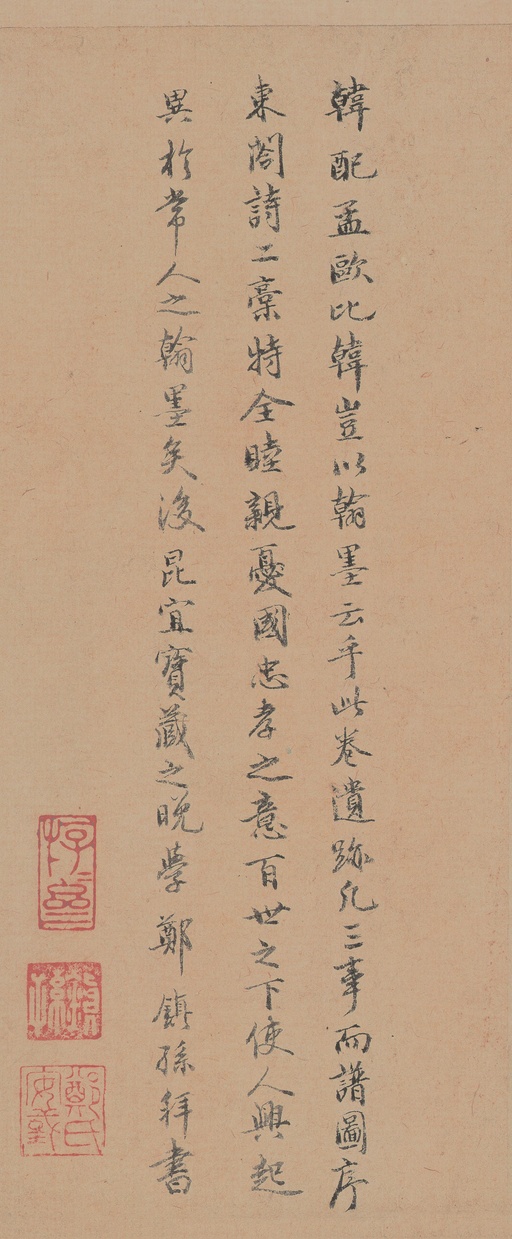 韓配孟歐比韓豈以翰墨云乎此卷遺跡凡三事而譜圖序
東閣詩二稾特全睦親憂國忠孝之意百世之下使人興起
異於常人之翰墨矣後昆宜寶藏之晩學鄭鎮孫拜書
鄭氏